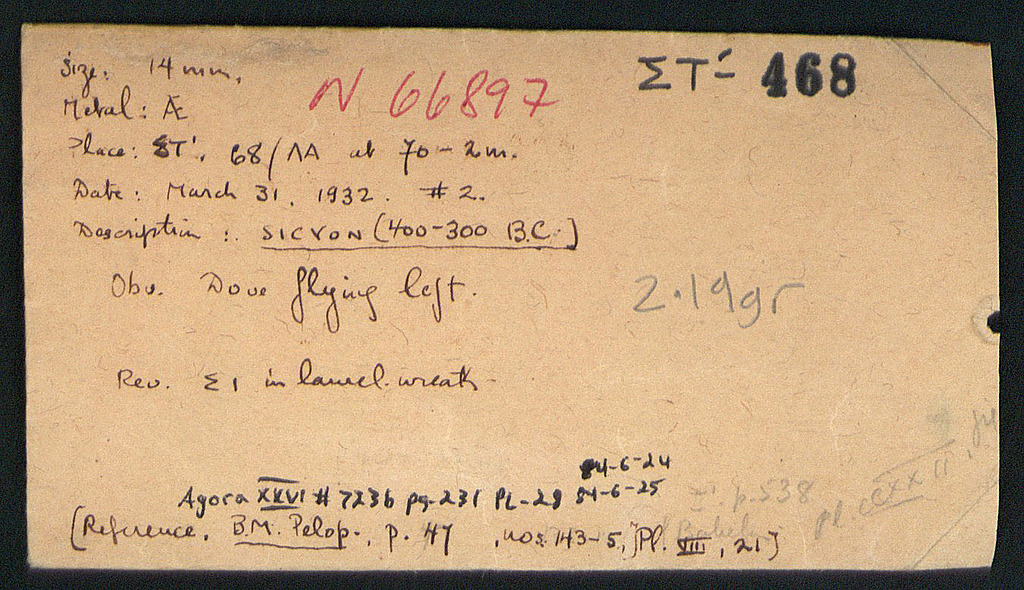 ΣΤ´- 468
Size: 14 mm.
N 66897
Metal: Æ
Place: ΣΤ', 68/ΛΑ at 70-2m.
Date: March 31, 1932. #2.
Description: SICYON (400-300 B.C.)
Obv. Dove flying left.
2.19gr
Rev. ΣΙ in laurel wreath
84-6-24
Agora XXVI # 723b pg-231 PL-29 84-6-25
p.538
pl. CCXXII,
(Reference, B.M. Pelop., p. 47, nos. 143-5, Pl. VIII, 21)